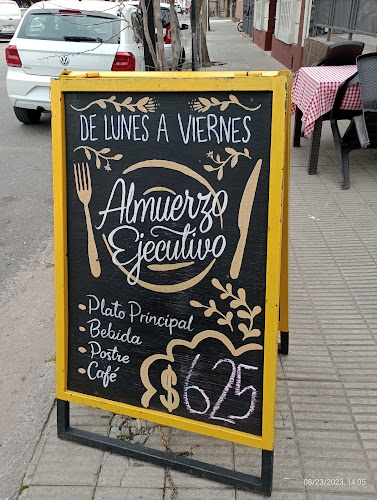 DE LUNES A VIERNES
Almuerzo
Ejecutivo
- Plato Principal
- Bebida
- Postre
- Café
$ 625
08/23/2023, 14:05